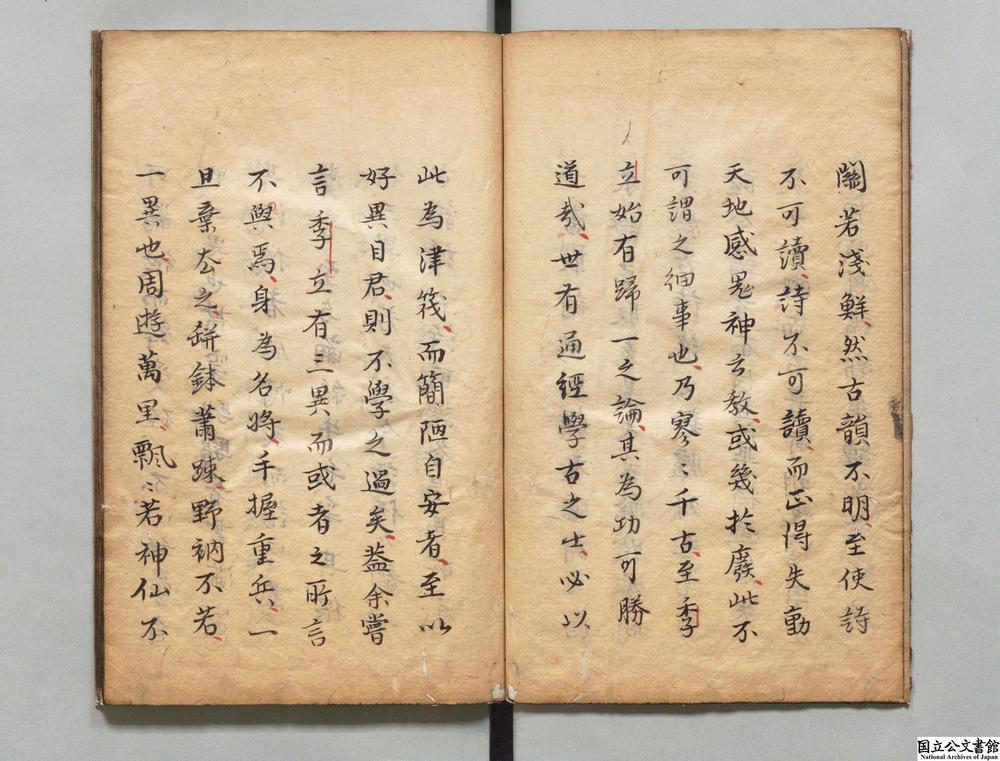 關若淺鮮然古韻不明至使詩
不可讀詩不可讀而正得失動
天地感鬼神之教或幾於廢此不
可謂之細事也乃寥〻千古至季
立始有歸一之論其為功可勝
道哉世有通經學古之士必以
此為津筏而簡陋自安者至以
好異目君則不學之過矣蓋余嘗
言季立有三異而或者之所言
不與焉身為名將手握重兵一
旦棄去之缾鉢蕭踈野衲不若
一異也周遊萬里飄〻若神仙不
国立公文書館
National Archives of Japan